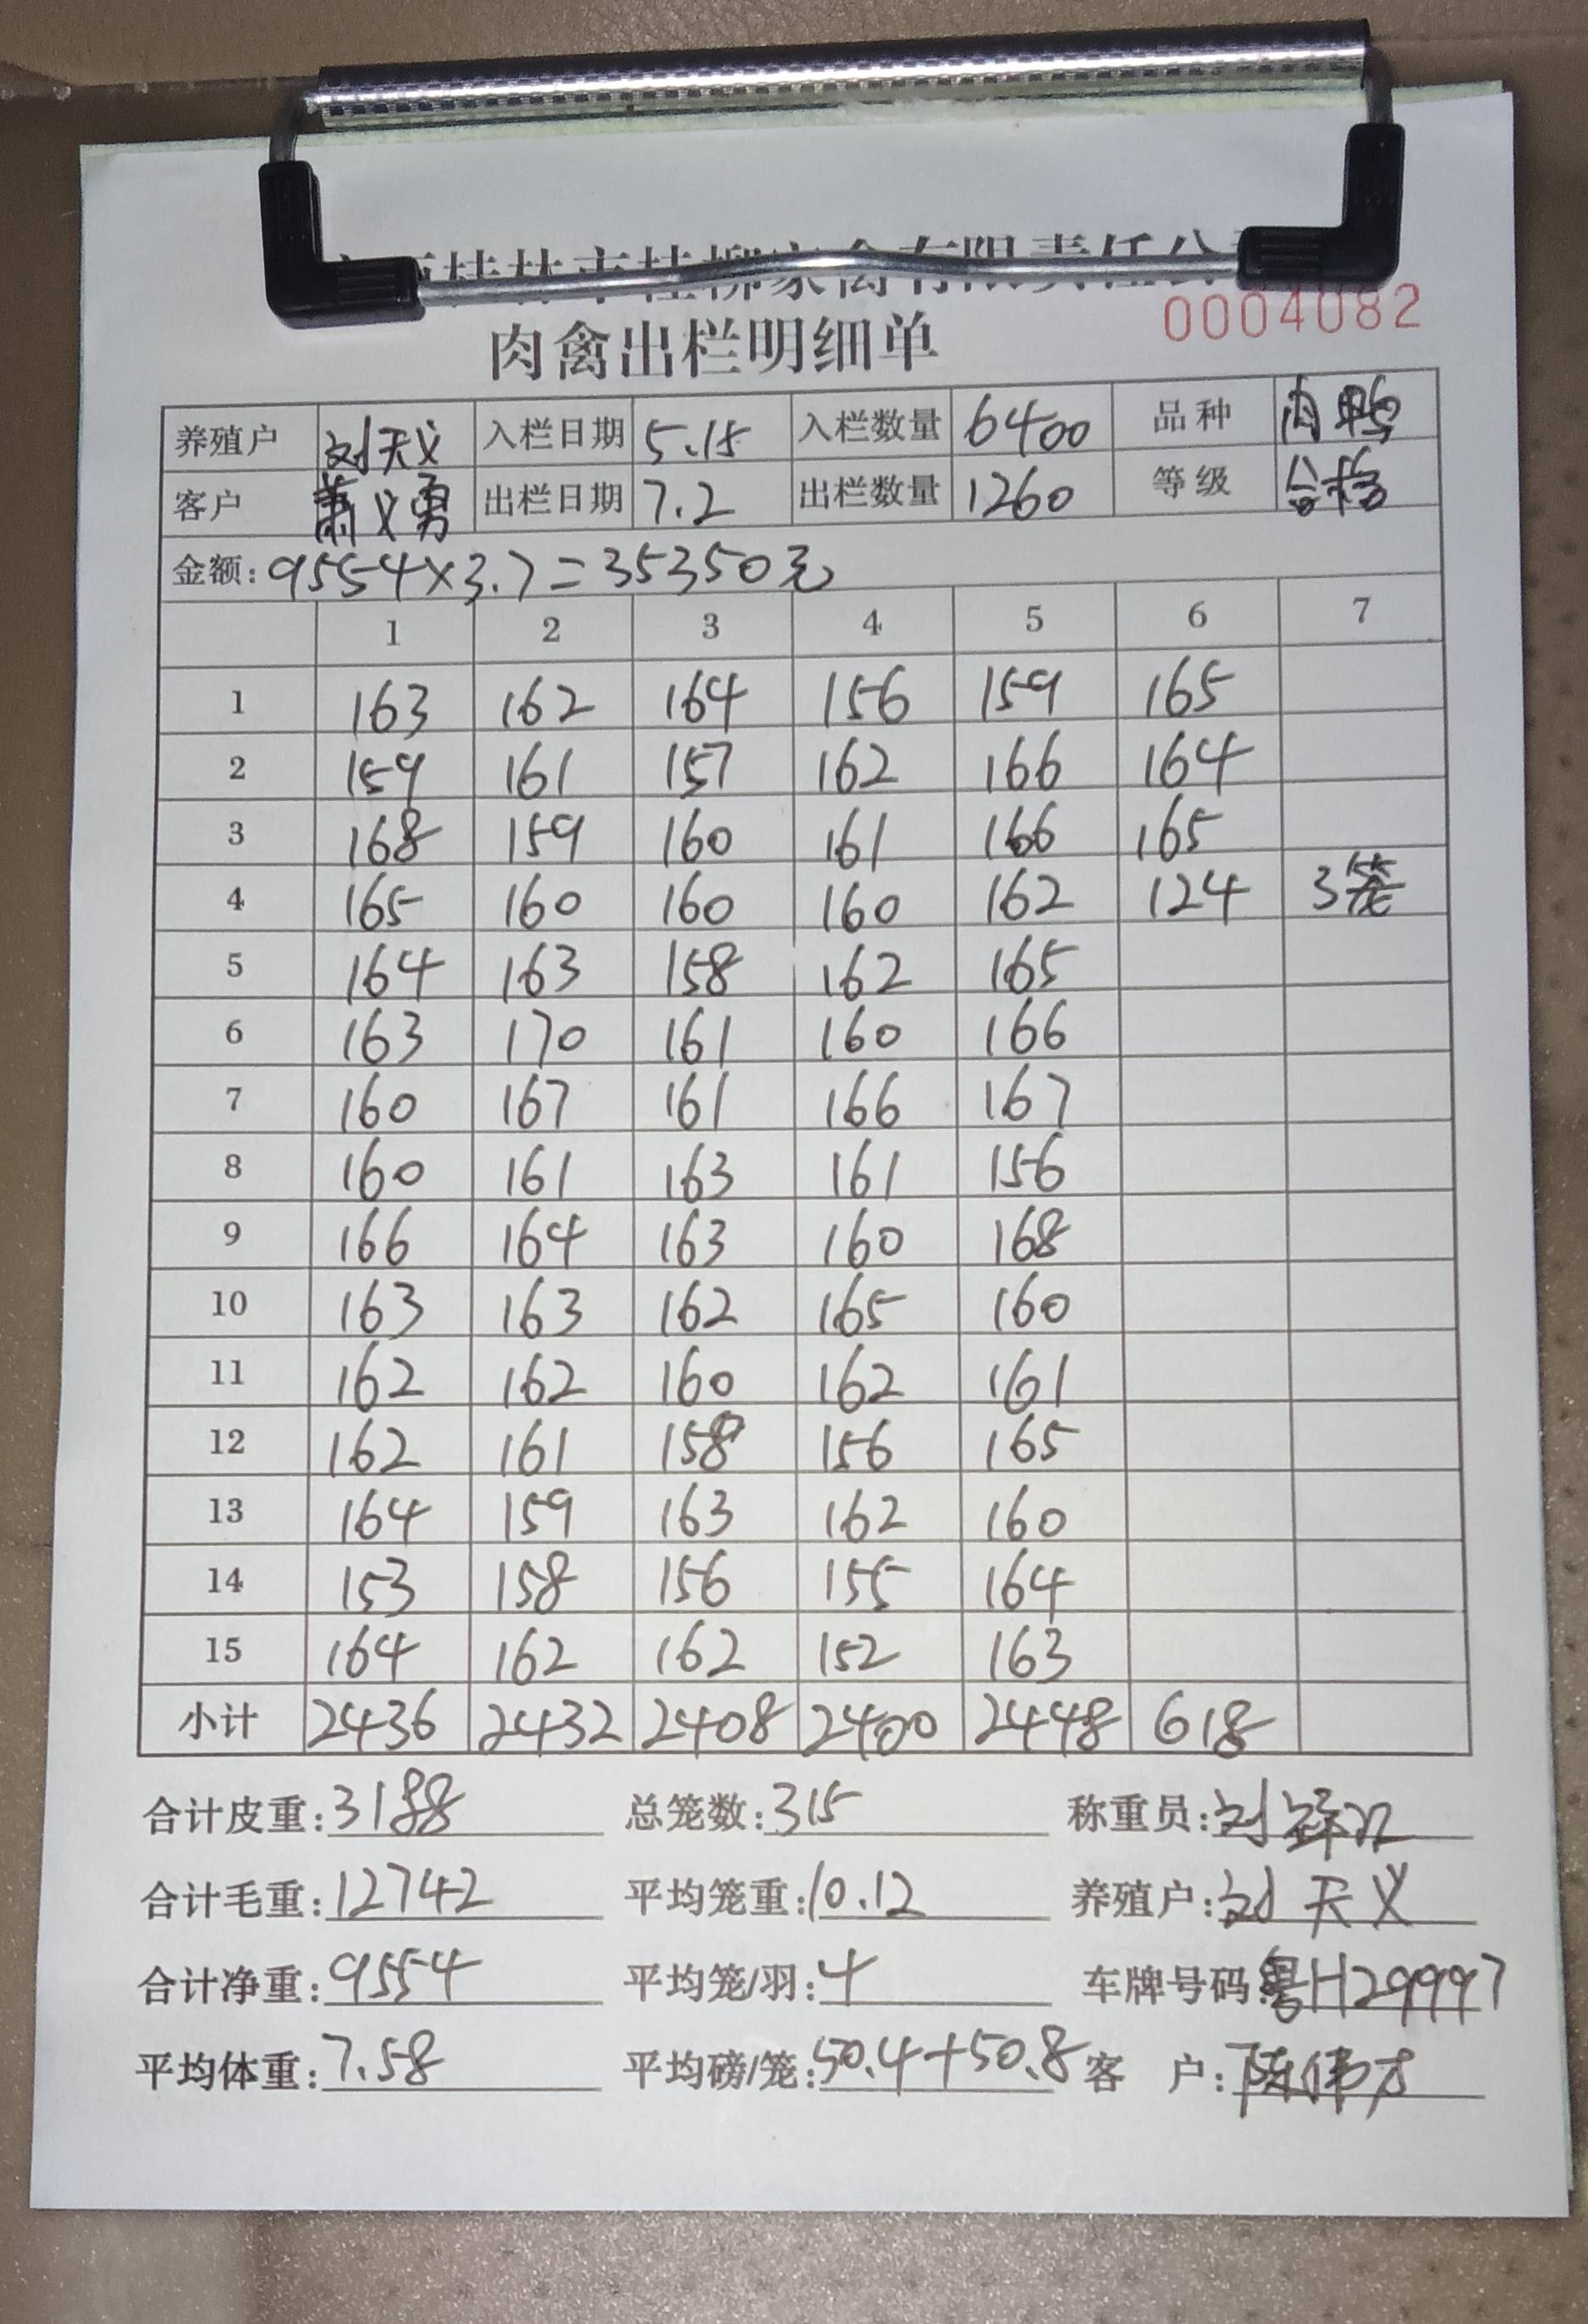 桂林市桂柳家禽有限责任公
0004082
肉禽出栏明细单
养殖户 刘天义 入栏日期 5.15 入栏数量 6400 品种 肉鸭
客户 萧义勇 出栏日期 7.2 出栏数量 1260 等级 合格
金额: 9554×3.7=35350元
1 2 3 4 5 6 7
1 163 162 164 156 159 165
2 159 161 157 162 166 164
3 168 159 160 161 166 165
4 165 160 160 160 162 124 3笼
5 164 163 158 162 165
6 163 170 161 160 166
7 160 167 161 166 167
8 160 161 163 161 156
9 166 164 163 160 168
10 163 163 162 165 160
11 162 162 160 162 161
12 162 161 158 156 165
13 164 159 163 162 160
14 153 158 156 155 164
15 164 162 162 152 163
小计 2436 2432 2408 2400 2448 618
合计皮重: 3188 总笼数: 315 称重员: 刘
合计毛重: 12742 平均笼重: 10.12 养殖户: 刘天义
合计净重: 9554 平均笼/羽: 4 车牌号码: 粤H29997
平均体重: 7.58 平均磅/笼: 50.4+50.8 客 户: 陈伟才